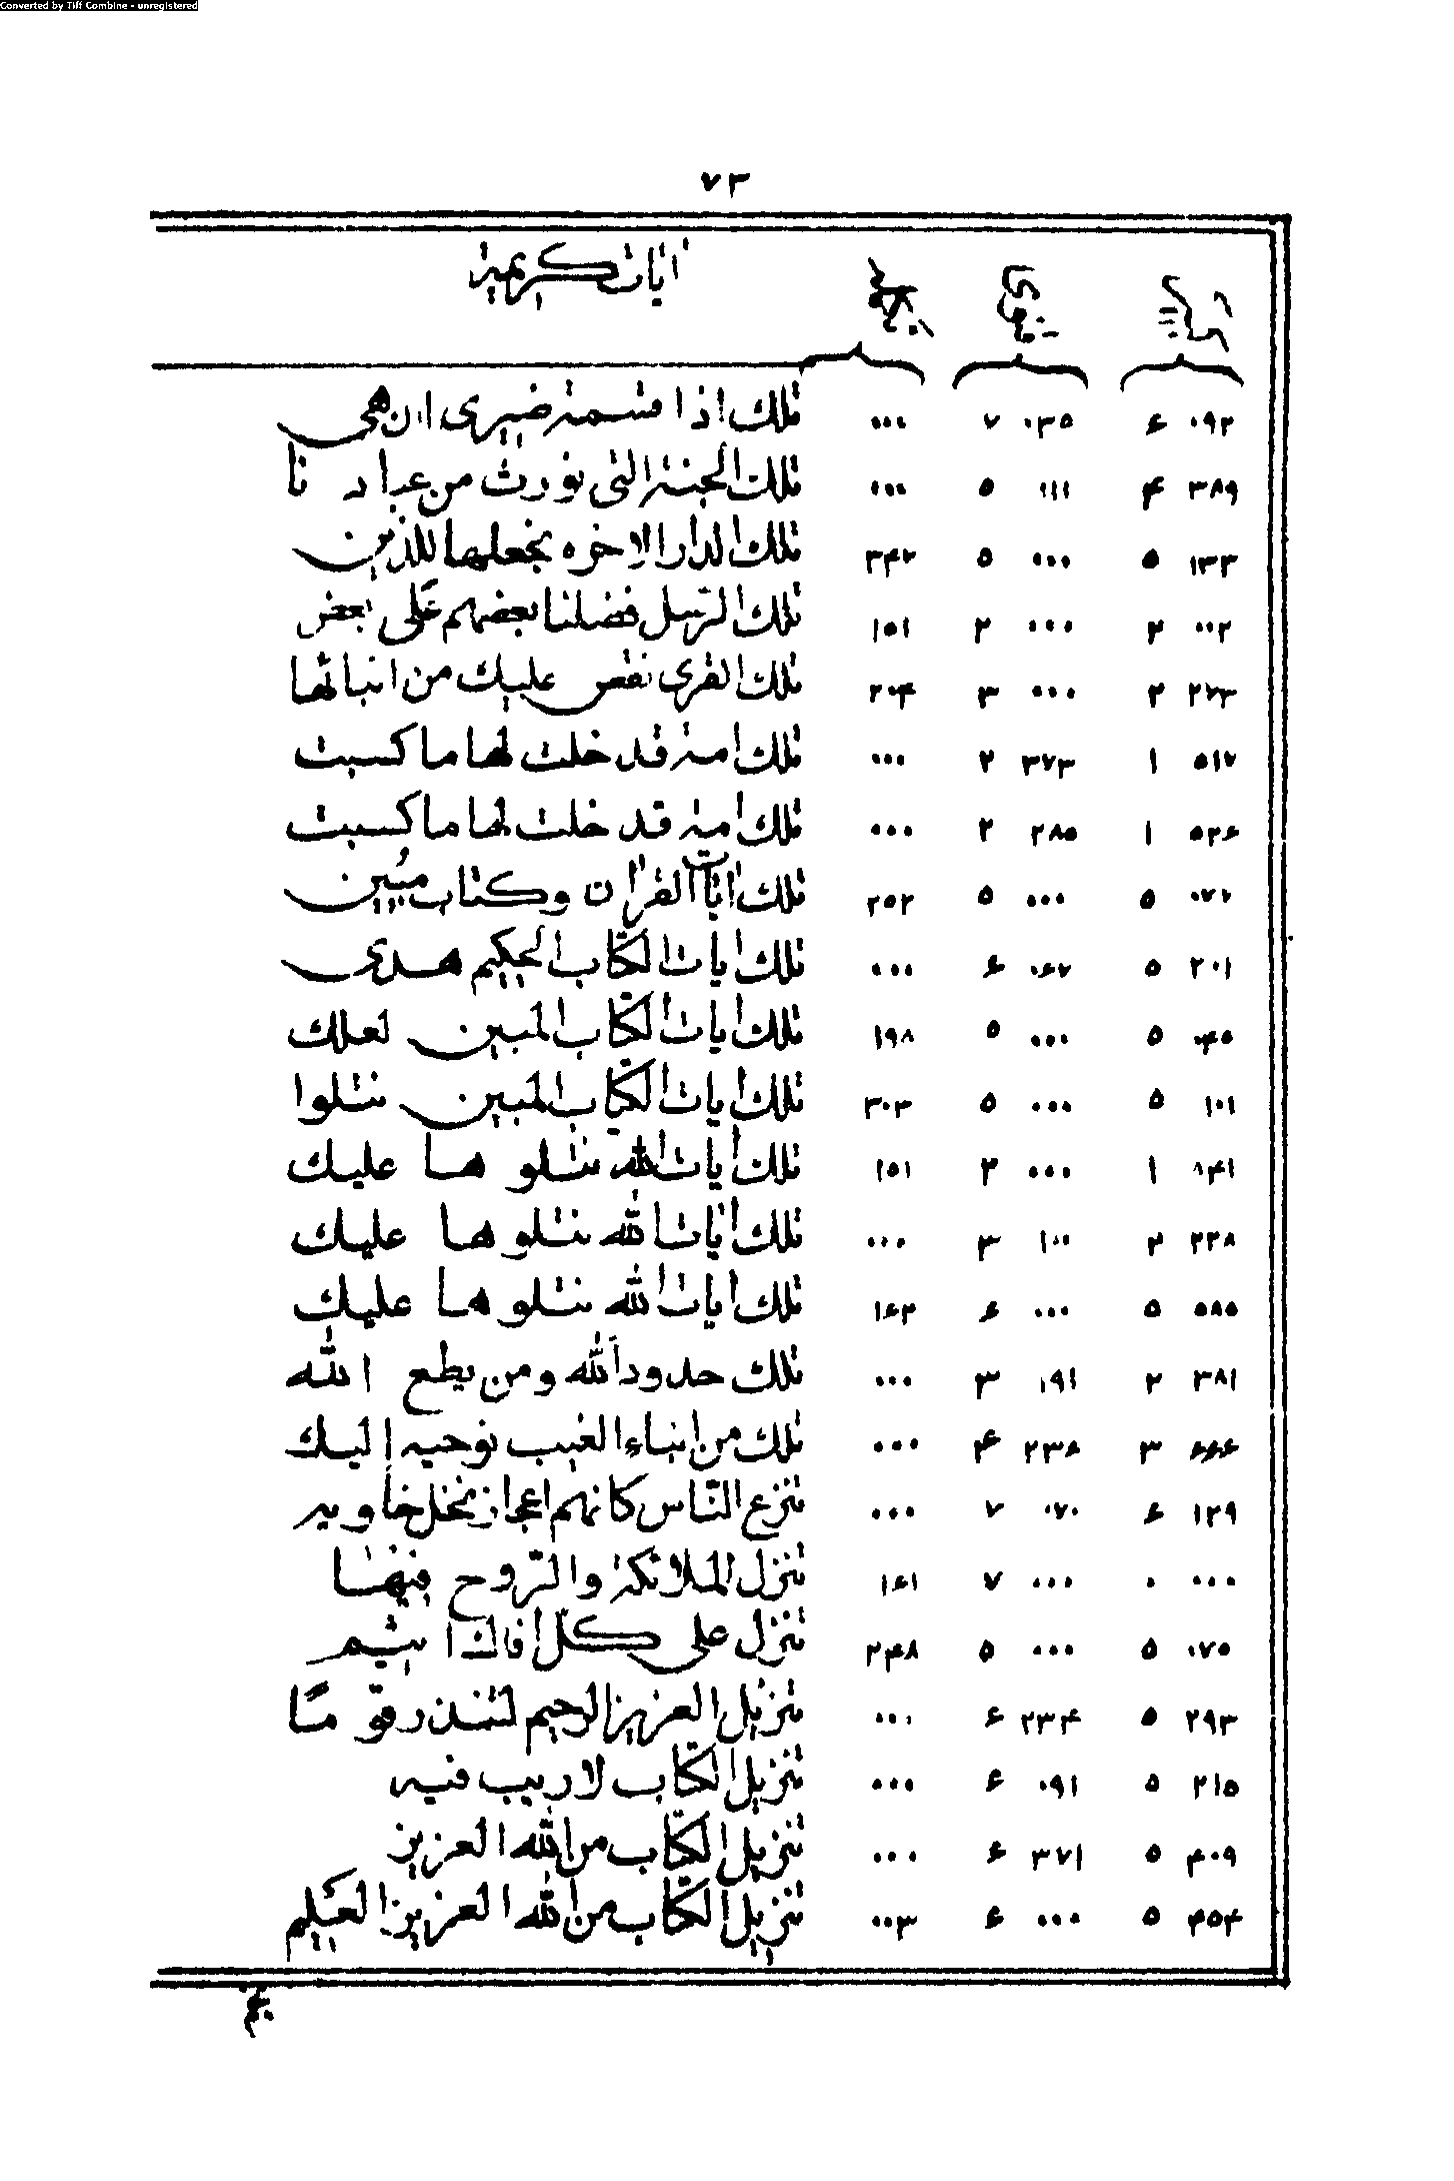 Converted by Tiff Combine - unregistered
٧٣
ايات كريمة
٠٩٢ ۶ ٠٣٥ ٧ ٠٠٠ تلك اذا قسمة ضيزى ان هى
٣٨٩ ۴ ١١١ ٥ ٠٠٠ تلك الجنة التى نورث من عبادنا
١٣٣ ٥ ٠٠٠ ٥ ٣۴٢ تلك الدار الاخره نجعلها للذين
٠٠٢ ٢ ٠٠٠ ٢ ١٥١ تلك الرسل فضلنا بعضهم على بعض
٢٧٣ ٢ ٠٠٠ ٣ ٢٠۴ تلك القرى نقص عليك من انبائها
٥١٧ ١ ٣٧٣ ٢ ٠٠٠ تلك امة قد خلت لها ما كسبت
٥٢۶ ١ ٢٨٥ ٢ ٠٠٠ تلك امة قد خلت لها ما كسبت
٠٧٢ ٥ ٠٠٠ ٥ ٢٥٢ تلك ايات القران وكتاب مبين
٢٠١ ٥ ٠۶٧ ۶ ٠٠٠ تلك ايات الكتاب الحكيم هدى
٠۴٥ ٥ ٠٠٠ ٥ ١٩٨ تلك ايات الكتاب المبين لعلك
١٠١ ٥ ٠٠٠ ٥ ٣٠٣ تلك ايات الكتاب المبين نتلوا
٨۴١ ١ ٠٠٠ ٢ ١٥١ تلك ايات الله نتلوها عليك
٢٢٨ ٢ ١٠٠ ٣ ٠٠٠ تلك ايات الله نتلوها عليك
٥٨٥ ٥ ٠٠٠ ۶ ١۶٢ تلك ايات الله نتلوها عليك
٣٨١ ٢ ١٩١ ٣ ٠٠٠ تلك حدود الله ومن يطع الله
۶۶۶ ٣ ٢٣۶ ۴ ٠٠٠ تلك من انباء الغيب نوحيه اليك
١٢٩ ۶ ٠٧٠ ٧ ٠٠٠ تنزع الناس كانهم اعجاز نخل خاويه
٠٠٠ ٠ ٠٠٠ ٧ ١۶١ تنزل الملائكة والروح فيها
٠٧٥ ٥ ٠٠٠ ٥ ٢۴٨ تنزل على كل افاك اثيم
٢٩٣ ٥ ٢٣۴ ۶ ٠٠٠ تنزيل العزيز الرحيم لتنذر قوما
٢١٥ ٥ ٠٩١ ۶ ٠٠٠ تنزيل الكتاب لا ريب فيه
۴٠٩ ٥ ٣٧١ ۶ ٠٠٠ تنزيل الكتاب من الله العزيز
۴٥۴ ٥ ٠٠٠ ۶ ٠٠٣ تنزيل الكتاب من الله العزيز العليم